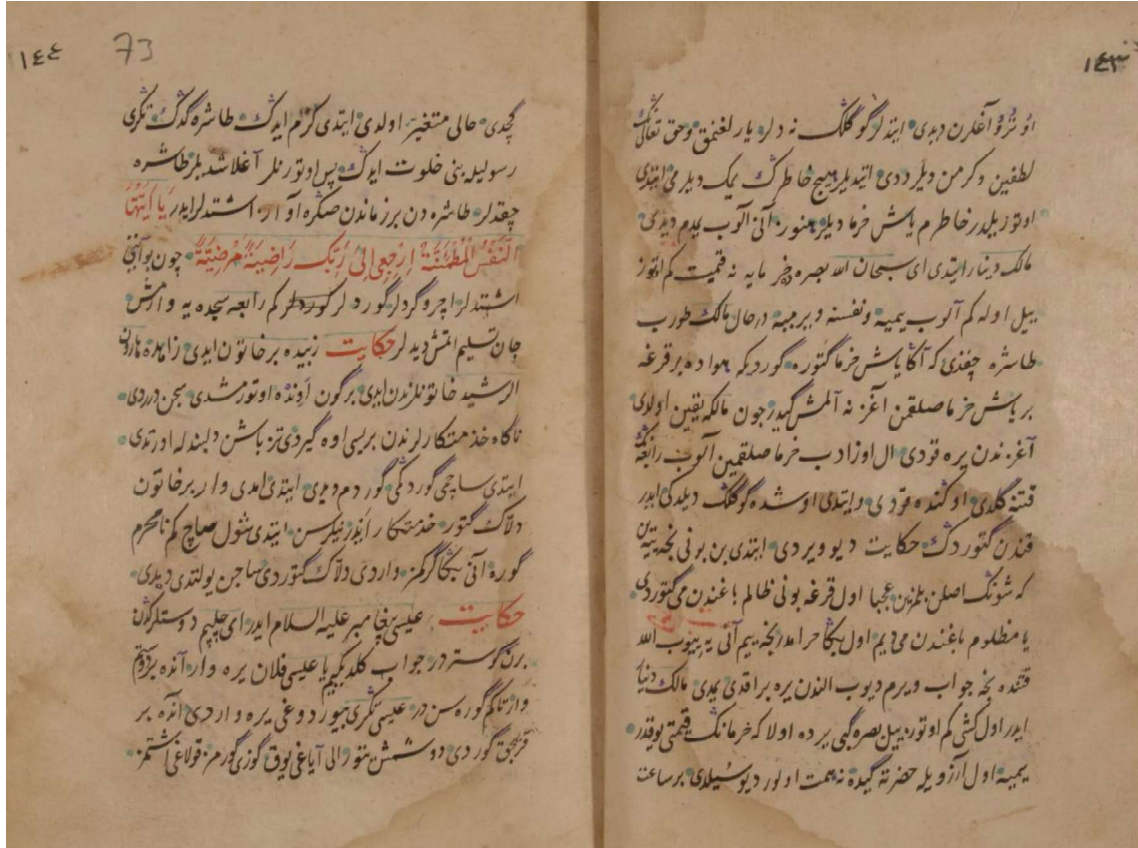 ١٤٣
اوتورو آغلرن دیدی ایتدلر گوگلك نه دلر یارلغنمق وحق تعالینك
لطفین وکرمن دیلر ددی ایتدیلر هیچ خاطرك یمك دیلر می ایتدی
اوتوز ییلدر خاطرم یاش خرما دیلر هنوز آنی آلوب یدم دیدی
مالك دینار ایتدی ای سبحان الله بصره ده خرمایه نه قیمت کم اوتوز
ییل اوله کم آلوب یمیه ونفسنه ویرمیه درحال مالك طورب
طاشره چقدی که آکا یاش خرما گتوره گوردیکه هواده بر قرغه
بر یاش خرما صلقمن آغزنه آلمش گیدر چون مالکه یقین اولدی
آغزندن یره قودی ال اوزادب خرما صلقمین آلوب رابعه
قتنه گلدی اوکنده قودی وایتدی اوشده گوگلك دیلدکی ایدر
قندن گتوردك حکایت دیو ویردی ایتدی بن بونی نجه ییین
که شونك اصلن بلمزین عجبا اول قرغه بونی ظالم باغندن می گتوردی
یا مظلوم باغندن می دیم اول بکا حرامدر نجه ییم آنی یه ییوب الله
قتنده نجه جواب ویرم دیوب الندن یره براقدی یمدی مالك دینار
ایدر اول کشی کم اوتوز ییل بصره گبی یرده اولا که خرمانك قیمتی یوقدر
یمیه اول آرزویله حضرته گیده نه همت اولور دیو سیلدی بر ساعت
١٤٤
73
گچدی حالی متغیر اولدی ایتدی کرم ایدك طاشره گدك تکری
رسولیله بنی خلوت ایدك پس اوتورنلر آغلاشدیلر طاشره
چقدلر طاشره دن بر زماندن صکره آواز اشتدلر ایدر یَا اَیَّتُهَا
النَّفْسُ الْمُطْمَئِنَّةُ اِرْجِعِی اِلَیٰ رَبِّكِ رَاضِیَةً مَرْضِیَّةً چون بو آنجه
اشتدلر ایچرو گردلر گوردلر کم رابعه سجده یه وارمش
جان تسلیم اتمش دیدلر حکایت زبیده بر خاتون ایدی زاهده هارون
الرشید خاتونلرندن ایدی بر گون اَونده اوتورمشدی سچن دردی
ناگاه خذمتکارلرندن بریسی اوه گیردی تز باشن دلبندله اورتدی
ایتدی ساچمی گوردکمی گوردم دیدی ایتدی امدی وار بر خاتون
دلاك گتور خذمتکار اَیدر نیلرسن ایتدی شول صاچ کم نامحرم
گوره آنی بکا گرکمز واردی دلاك گتوردی صاچن یولتدی دیدی
حکایت عیسی پیغامبر علیه السلام ایدر ای چلبم دوستلرکدن
برن گوستر در جواب کلدکیم یا عیسی فلان یره وار آنده بر دوستم
وار تاکم گوره سن در عیسی تکری بیوردوغی یره واردی آنده بر
قرجق گوردی دوشمش یتور الی آیاغی یوق گوزی گورمز قولاغی اشتمز